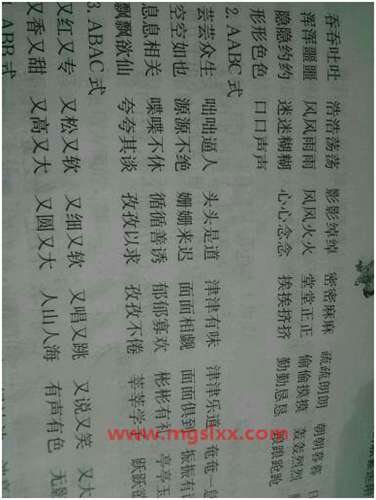 吞吞吐吐 浩浩荡荡 影影绰绰 密密麻麻 疏疏朗朗 朝朝暮暮
浑浑噩噩 风风雨雨 风风火火 堂堂正正 偷偷摸摸 轰轰烈烈
隐隐约约 迷迷糊糊 心心念念 挨挨挤挤 勤勤恳恳
形形色色 口口声声
2. AABC 式
芸芸众生 咄咄逼人 头头是道 津津有味 津津乐道 奄奄一
空空如也 源源不绝 姗姗来迟 面面相觑 面面俱到 振振有
息息相关 喋喋不休 循循善诱 郁郁寡欢 彬彬有礼 亭亭玉
飘飘欲仙 夸夸其谈 孜孜以求 孜孜不倦 莘莘学子 跃跃欲
3. ABAC 式
又红又专 又松又软 又细又软 又唱又跳 又说又笑 又大
又香又甜 又高又大 又圆又大 人山人海 有声有色 无
ABB 式
www.mgslxx.com